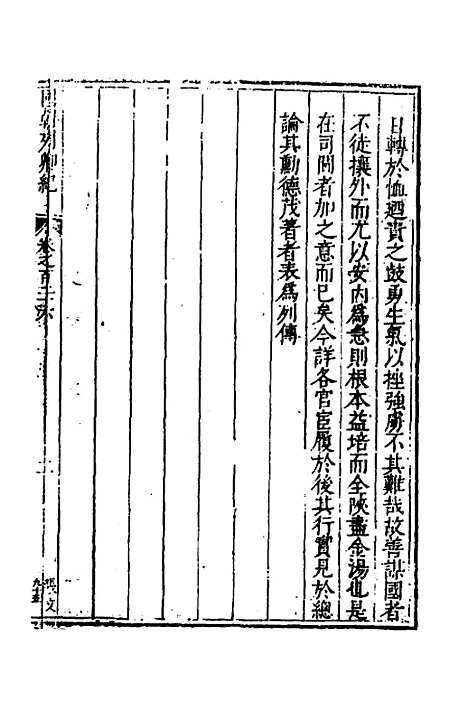 日轉於恤迺責之鼓勇生氣以挫強虜不其難哉故善謀國者
不徒攘外而尤以安內為急則根本益培而全陝盡金湯也是
在司閫者加之意而已矣今詳各官宦履於後其行實見於總
論其勳德茂著者表為列傳
國朝列卿紀
卷之百二十六
二